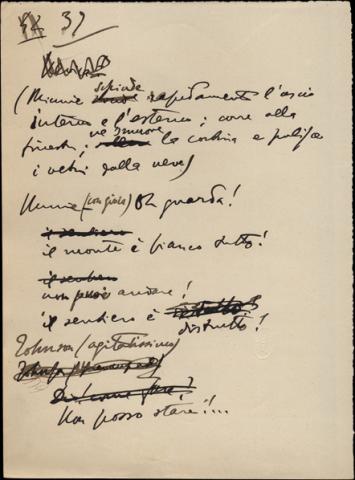 37
(Minnie schiude rapidamente l'uscio
interno e l'esterno; corre alla
finestra, ne smuove la cortina e pulisce
i vetri dalla neve)
Minnie (con gioia) Oh guarda!
il sentiero
il monte è bianco tutto!
il sentier
non puoi andare!
il sentiero è
distrutto!
Johnson (agitatissimo)
Dio! come fare?
Non posso stare!...